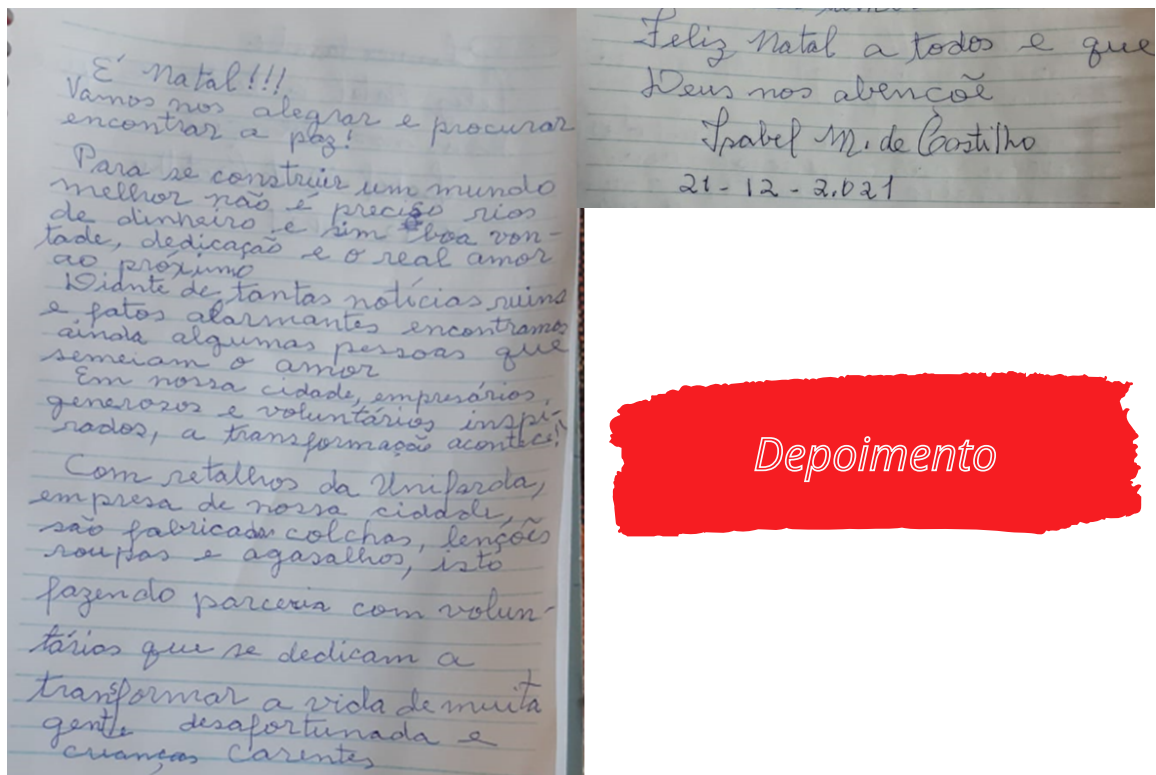 É Natal!!!
Vamos nos alegrar e procurar
encontrar a paz!
Para se construir um mundo
melhor não é preciso rios
de dinheiro e sim boa von-
tade, dedicação e o real amor
ao próximo
Diante de tantas notícias ruins
e fatos alarmantes encontramos
ainda algumas pessoas que
semeiam o amor
Em nossa cidade, empresários,
generosos e voluntários inspi-
rados, a transformação acontece!
Com retalhos da Unifarda,
empresa de nossa cidade,
são fabricadas colchas, lençõis
roupas e agasalhos, isto
fazendo parceria com volun-
tários que se dedicam a
transformar a vida de muita
gente desafortunada e
crianças carentes
Feliz Natal a todos e que
Deus nos abençõe
Isabel M. de Castilho
21-12-2.021
Depoimento